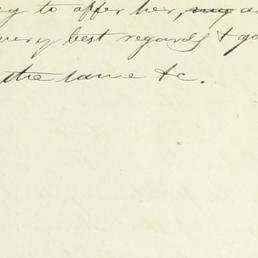 to offer her, my
very best regards & go
the same &c.